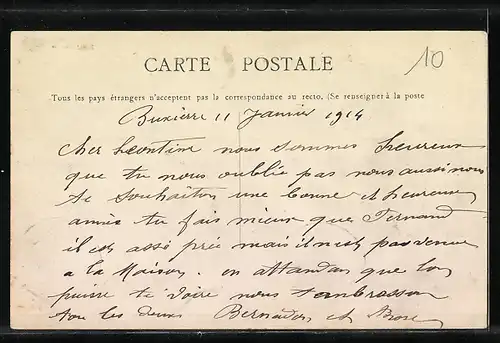 10
CARTE POSTALE
Tous les pays étrangers n'acceptent pas la correspondance au recto. (Se renseigner à la poste
Buxière 11 Janvier 1914
Cher Leontine nous sommes heureux
que tu nous oublie pas nous aussi nous
te souhaiton une bonne et heureuse
année tu fais mieux que Fernand
il est assé prée mais il nest pas venue
a la Maison. en attandan que lon
puisse te voire nous tambrasson
tou les deux Bernadon et Rose